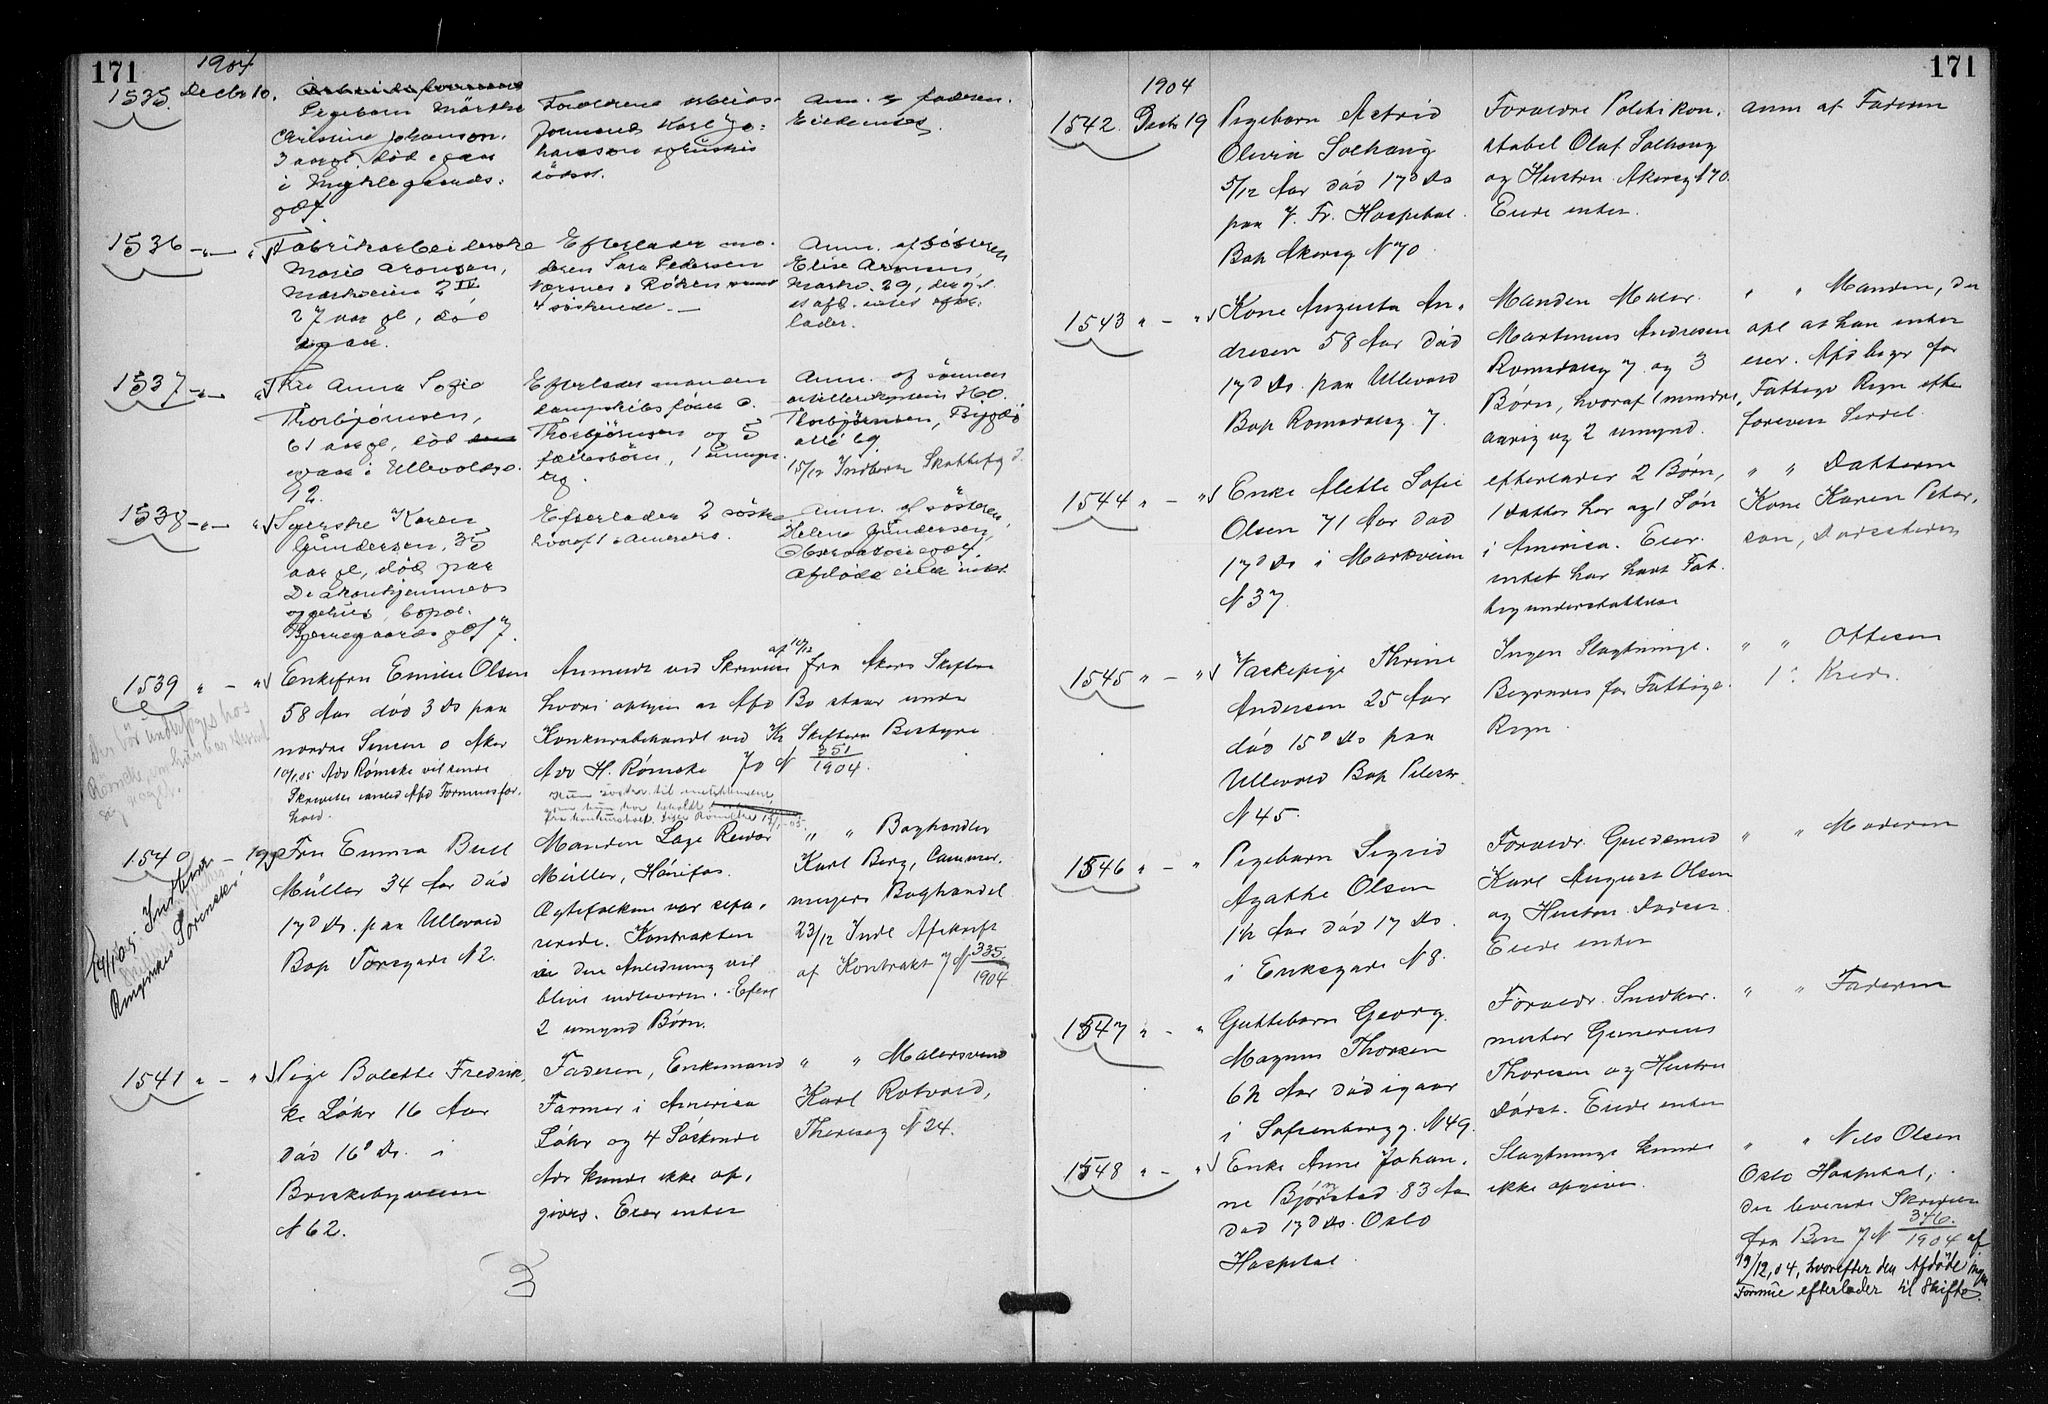 171
1904
1535. Decbr 10.
Pigebarn Märtha
Christine Johansen,
3 aar gl. død igaar
i
gt 7.
Forældrene arbeids-
formand Karl Jo-
hansen og hustru
Anm. af faderen.
1536 -"-
Fabrikarbeiderske
Marie Aronsen,
Markveien 2 IV
27 aar gl, død
igaar.
Efterlader mo-
deren Sara Pedersen
Nærsnes i Røken samt
4 søskende. -
Anm. af søsteren
Elise Aronsen,
Markv. 29,
afd. intet efter-
lader.
1537 -"-
Fru Anna Sofie
Thorbjørnsen,
61 aar gl, død
igaar i Ullevoldsv.
92.
Efterlader manden
dampskibsfører O.
Thorbjørnsen og 5
fællesbørn, 1 umyn-
dig.
Anm. af sønnen
H.O.
Thorbjørnsen, Bygdø
allé 69.
15/12 Indbern Skattefog d.
1538 -"-
Syerske Karen
Gundersen, 35
aar gl, død paa
Diakonhjemmets
sygehus, bopæl
Bjerregaards gt 7.
Efterlader 2 søstre
hvoraf 1 i Amerika.
Anm. af søsteren,
Helene Gundersen,
Observatoriegt.
Afdøde eiede intet
1539 " - "
Enkefru Emilie Olsen
58 Aar død 3 Ds paa
nordre Sinsen o Aker
10/1.05 Adv Rømcke vil sende
Skrivelse ang. Afd Formuesfor-
hold.
Anmeldt ved Skrivelse af 10/12 fra Akers Skifter
hvori opgives at Afd Bo staar under
Konkursbehandl ved Kr Skifteret Bestyrer
Adv H. Rømcke Jo N 351/1904.
1540 - 19
Fru Emma Bull
Müller 34 Aar død
17d Ds. paa Ullevold
Bop Torsgade N 2.
Manden Lage Reidar
Müller, Hønefos.
Ægtefolkene var sepa-
rerede. Kontrakten
i den Anledning vil
blive indleveret. Efterl
2 umynd Børn.
" " Boghandler
Karl Berg, Cammer-
meyers Boghandel
23/12 Indl Afskrift
af Kontrakt J N 335/1904
14/1 05. Indbern
Ringerikes Sorenskr.
1541 " - "
Pige Bolette Fredrik-
ke Løhr 16 Aar
død 16d Ds. i
Briskebyveien
N 62.
Faderen, Enkemand
Farmer i America
Løhr og 4 Søskende
Adr kunde ikke op-
gives. Eier intet
" " Malersvend
Karl Rotvold,
Theresesg N 24.
3
171
1904
1542. Decbr 19
Pigebarn Astrid
Olivia Solhaug
5/12 Aar død 17d Ds
paa J. Fr. Hospital.
Bop Akersg N 70
Forældre Politikon-
stabel Olaf Solhaug
og Hustru Akersg N 70.
Eiede intet.
anm af Faderen
1543 " - "
Kone Augusta An-
dresen 58 Aar død
17d Ds. paa Ullevold
Bop Romsdalsg. 7.
Manden Maler
Martinius Andresen
Romsdalsg 7 og 3
Børn, hvoraf 1 mindre-
aarig og 2 umynd.
" " Manden, der
opl at han intet
eier. Afd begr for
Fattigv Regn efter
forevist Seddel.
1544 " - "
Enke Alette Sofie
Olsen 71 Aar død
17d Ds i Markveien
N 37
efterlader 2 Børn,
1 Datter her og 1 Søn
i America. Eier
intet har havt Fat-
tigunderstøttelse
" " Datteren
Kone Karen Peter-
sen, Dødsstedet
1545 " - "
Vaskepige Thrine
Andersen 25 Aar
død 15d Ds paa
Ullevold Bop Pilestr
N 45.
Ingen Slægtninge.
Begraves for Fattigv.
Regn
" " Ottesen
1' Kreds.
1546 " - "
Pigebarn Sigrid
Agathe Olsen
1½ Aar død 17 Ds.
i Eriksgade N 8.
Forældr. Guldsmed
Karl August Olsen
og Hustru Dødsst
Eiede intet
" " Moderen
1547 " - "
Guttebarn Georg
Magnus Thoresen
6½ Aar død igaar
i Sofienbergg. N 49.
Forældr. Snedker-
mester Gunerius
Thoresen og Hustru
Dødst. Eiede intet
" " Faderen
1548 " - "
Enke Anne Johan-
ne Bjørnstad 83 Aar
død 17d Ds. Oslo
Hospital.
Slægtninge kunde
ikke opgives.
" " Nils Olsen
Oslo Hospital,
der leverede Skrivelse
fra J N 346/1904 af
19/12.04, hvorefter den Afdøde ingen
Formue efterlader til Skifte.